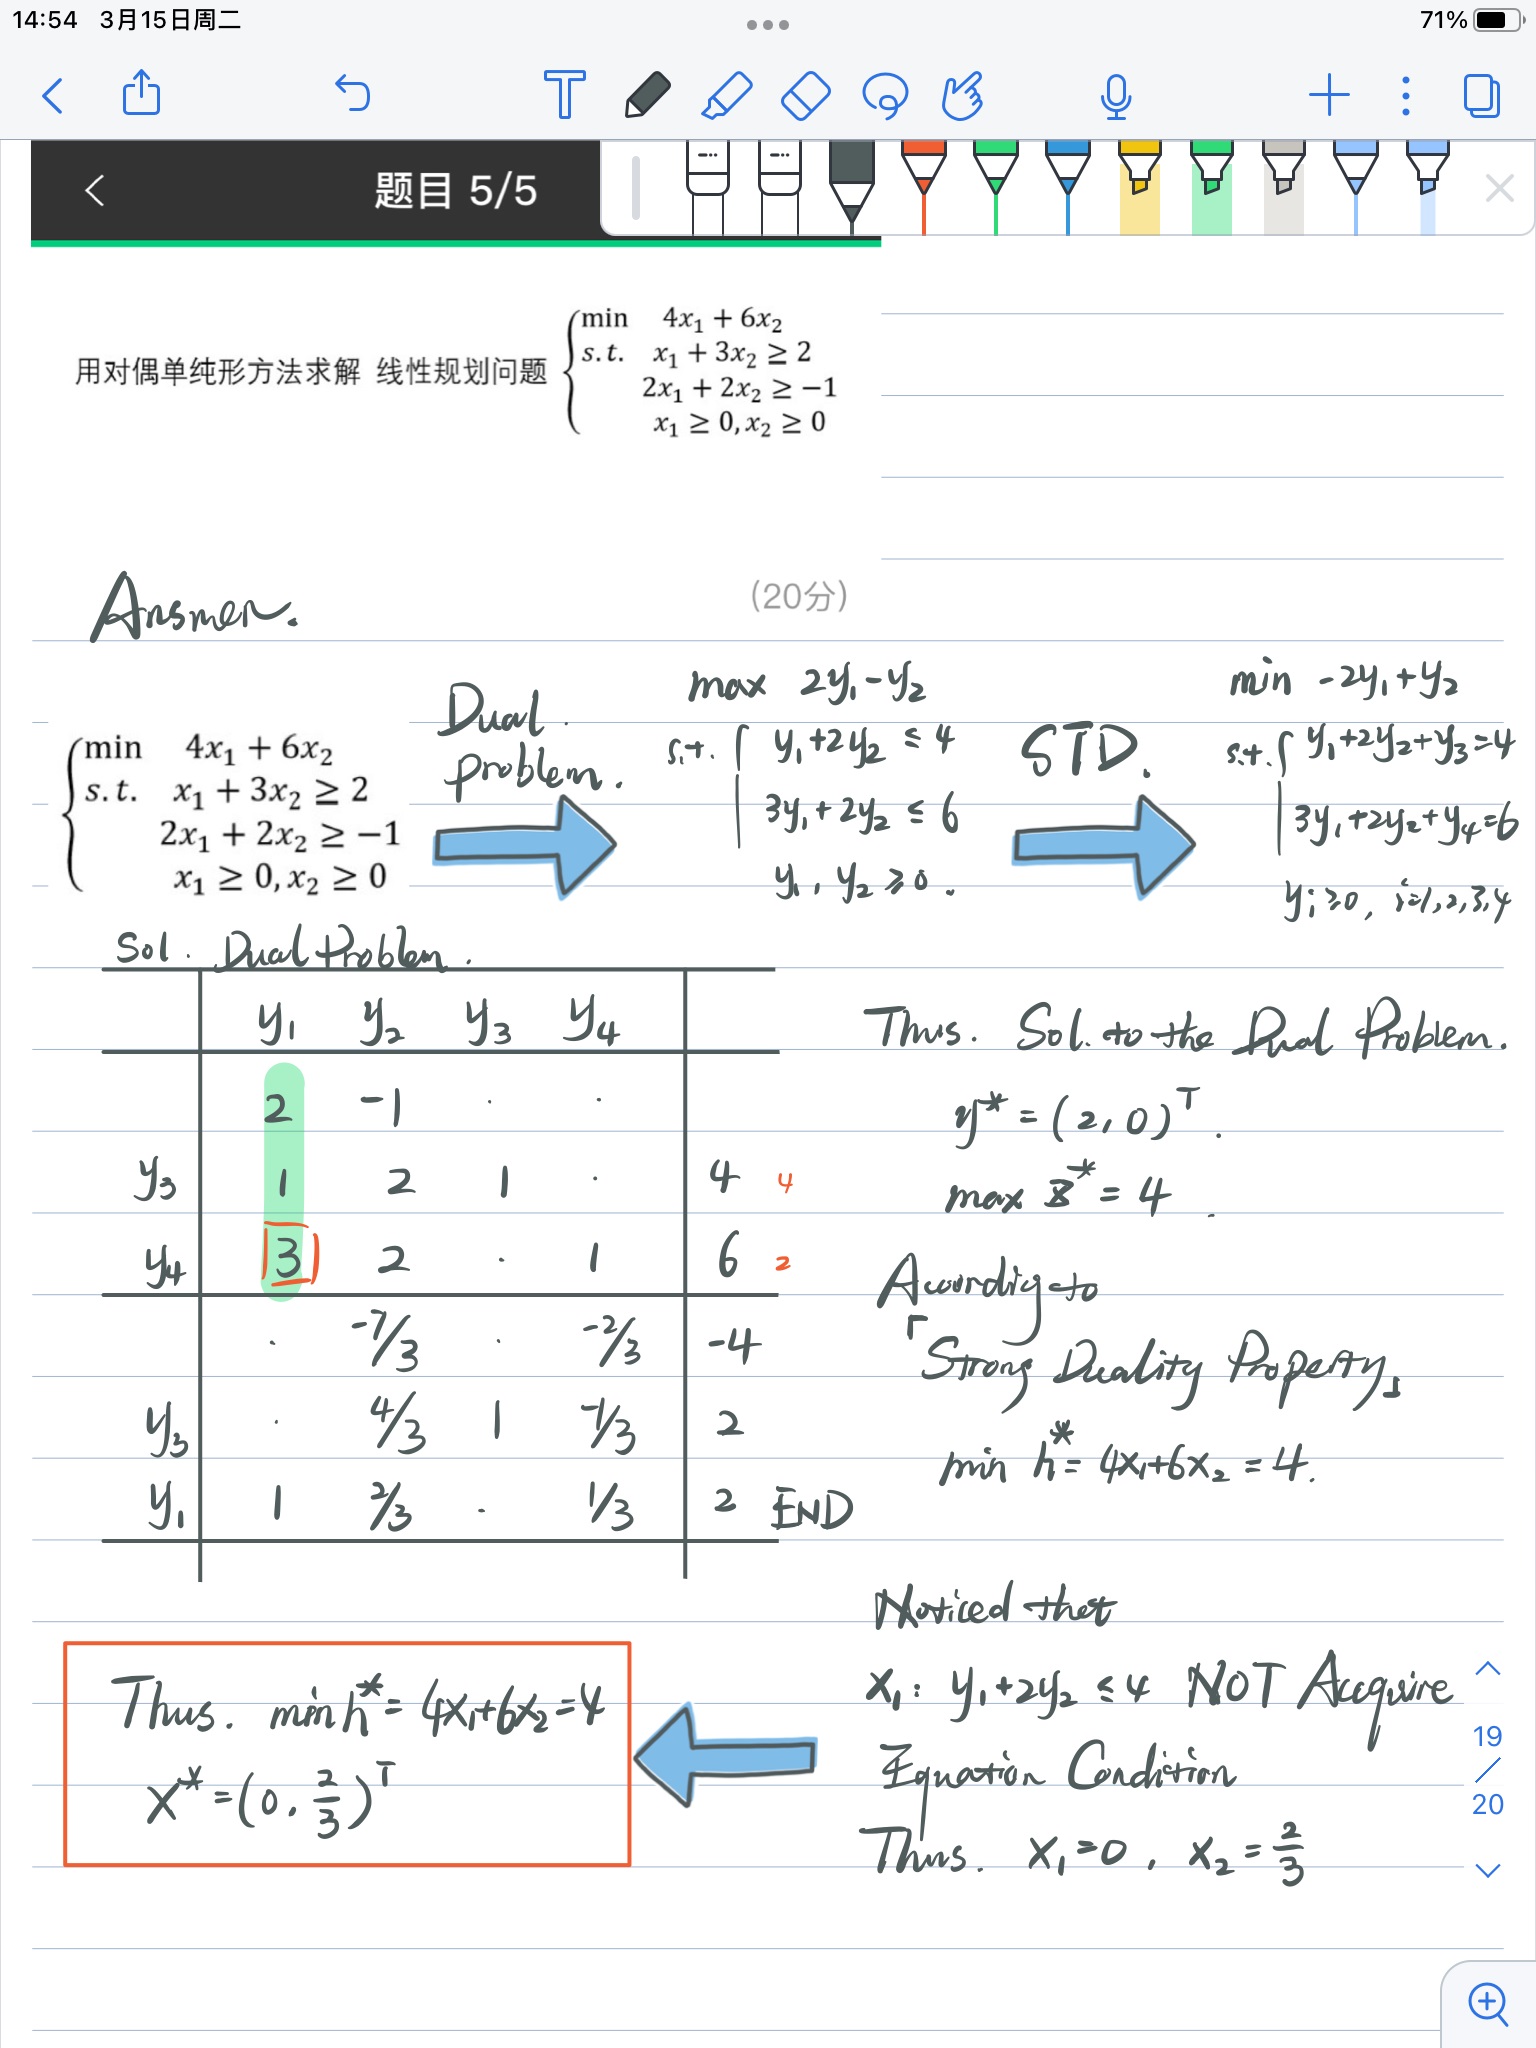 14:54 3月15日周二 71%
题目 5/5
用对偶单纯形方法求解 线性规划问题
min 4x₁ + 6x₂
s.t. x₁ + 3x₂ ≥ 2
2x₁ + 2x₂ ≥ −1
x₁ ≥ 0, x₂ ≥ 0
(20分)
Answer.
min 4x₁ + 6x₂
s.t. x₁ + 3x₂ ≥ 2
2x₁ + 2x₂ ≥ −1
x₁ ≥ 0, x₂ ≥ 0
Dual
problem.
max 2y₁-y₂
s.t. y₁+2y₂ ≤ 4
3y₁+2y₂ ≤ 6
y₁, y₂ ≥ 0.
STD.
min -2y₁+y₂
s.t. y₁+2y₂+y₃=4
3y₁+2y₂+y₄=6
yᵢ≥0, i=1,2,3,4
Sol. Dual Problem.
y₁ y₂ y₃ y₄
2 -1 · ·
y₃ 1 2 1 · 4 4
y₄ 3 2 · 1 6 2
· -7/3 · -2/3 -4
y₃ · 4/3 1 -1/3 2
y₁ 1 2/3 · 1/3 2 END
Thus. Sol. to the Dual Problem.
y* = (2, 0)ᵀ.
max z* = 4.
Acording to
「Strong Duality Property」
min h* = 4x₁+6x₂ = 4.
Noticed that
x₁: y₁+2y₂ ≤ 4 NOT Acquire
Equation Condition
Thus. x₁=0, x₂=2/3
Thus. min h* = 4x₁+6x₂=4
x* = (0, 2/3)ᵀ
19
/
20